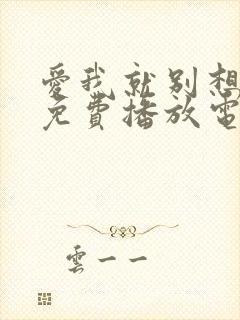 愛我就別想
免費播放電
雲一一